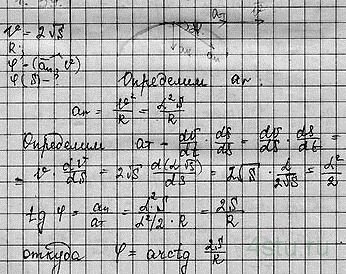 v = 2√S
R;
φ - (a⃗n, v⃗)
φ(S) - ?
aτ v
an
Определим an.
an = v²/R = α²S/R
Определим aτ = dv/dt · dS/dS = dv/dS · dS/dt =
= v dv/dS = 2√S d(α√S)/dS = 2√S · α/2√S = α²/2
tg φ = an/aτ = α²·S/α²/2·R = 2S/R
откуда φ = arctg 2S/R